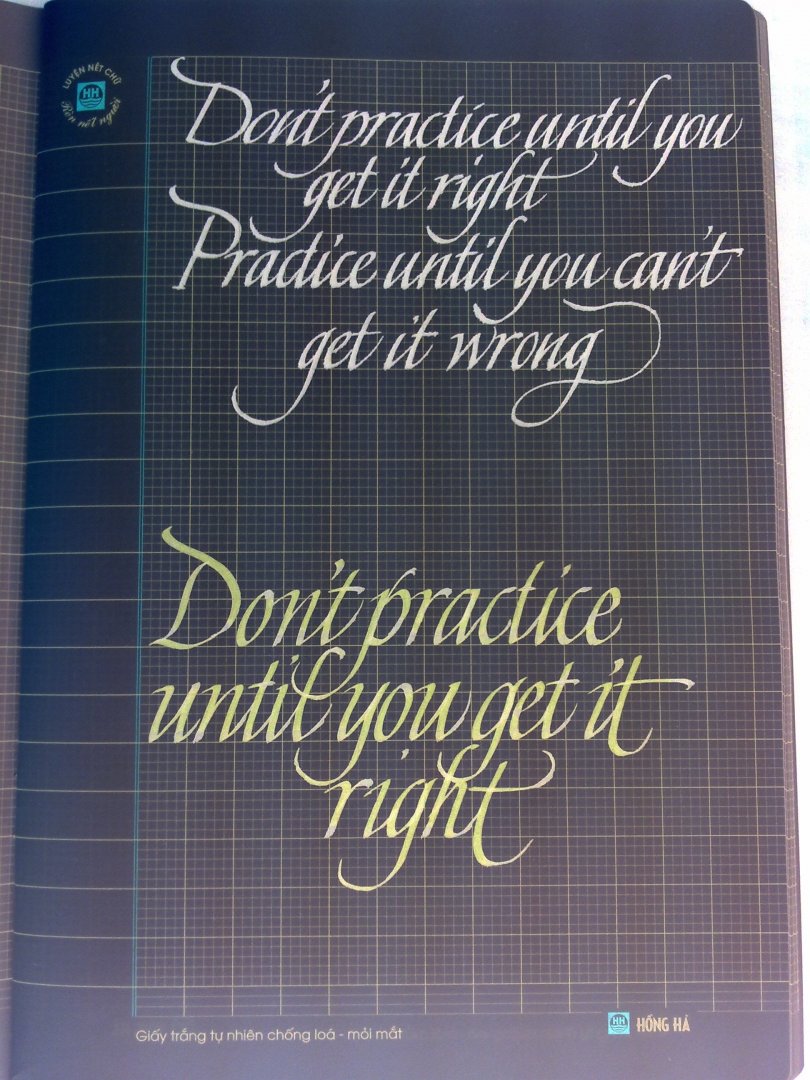 LUYỆN NÉT CHỮ
HH
Rèn nết người
Don't practice until you
get it right
Practice until you can't
get it wrong
Don't practice
until you get it
right
Giấy trắng tự nhiên chống loá - mỏi mắt
HH HỒNG HÀ